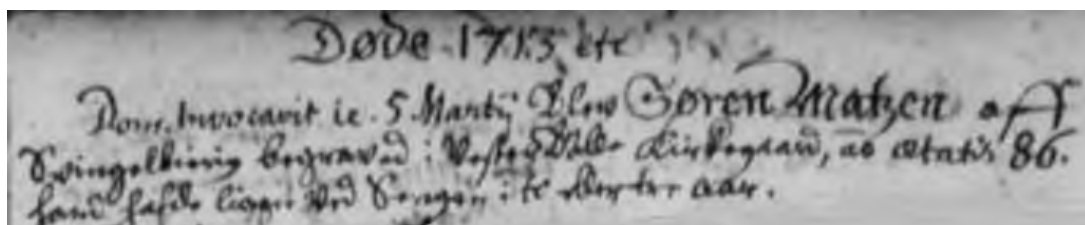 Døde 1713 etc
Dom. Invocavit ie. 5 Martij Blev Søren Matzen aff
begraved i Vester Kirkegaard, ao ætatis 86.
hand hafde ligget ved Sengen i aar.